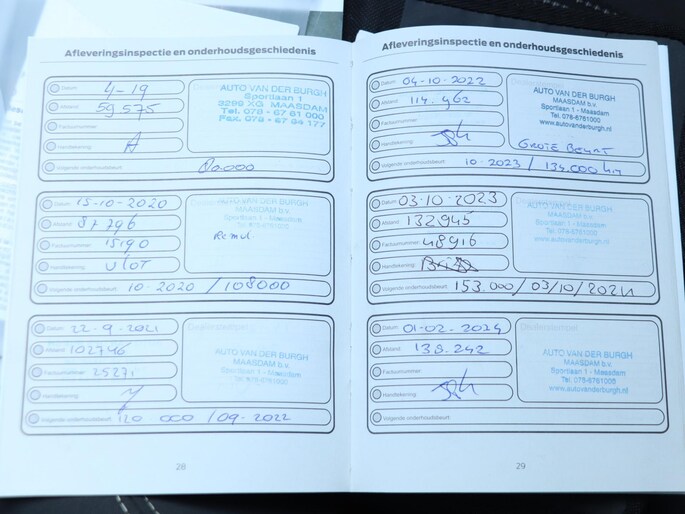 Afleveringsinspectie en onderhoudsgeschiedenis
Datum 4-19
Afstand 59.575
Factuurnummer
Handtekening
Volgende onderhoudsbeurt 80.000
AUTO VAN DER BURGH
Sportlaan 1
3299 XG MAASDAM
Tel. 078 - 67 61 000
Fax. 078 - 67 64 177
Datum 15-10-2020
Afstand 87796
Factuurnummer 15190
Handtekening
Volgende onderhoudsbeurt 10-2020 / 108000
AUTO VAN DER BURGH
MAASDAM b.v.
Sportlaan 1 - Maasdam
Tel. 078-6761000
Datum 22-9-2021
Afstand 102746
Factuurnummer 25271
Handtekening
Volgende onderhoudsbeurt 120 000 / 09-2022
AUTO VAN DER BURGH
MAASDAM b.v.
Sportlaan 1 - Maasdam
Tel. 078-6761000
28
Afleveringsinspectie en onderhoudsgeschiedenis
Datum 04-10-2022
Afstand 114.962
Factuurnummer
Handtekening
Volgende onderhoudsbeurt 10-2023 / 134.000 km
AUTO VAN DER BURGH
MAASDAM b.v.
Sportlaan 1 - Maasdam
Tel. 078-6761000
www.autovanderburgh.nl
GROTE BEURT
Datum 03-10-2023
Afstand 132945
Factuurnummer 48916
Handtekening
Volgende onderhoudsbeurt 153.000 / 03/10/2024
AUTO VAN DER BURGH
MAASDAM b.v.
Sportlaan 1 - Maasdam
Tel. 078-6761000
www.autovanderburgh.nl
Datum 01-02-2024
Afstand 138.242
Factuurnummer
Handtekening
Volgende onderhoudsbeurt
AUTO VAN DER BURGH
MAASDAM b.v.
Sportlaan 1 - Maasdam
Tel. 078-6761000
www.autovanderburgh.nl
29